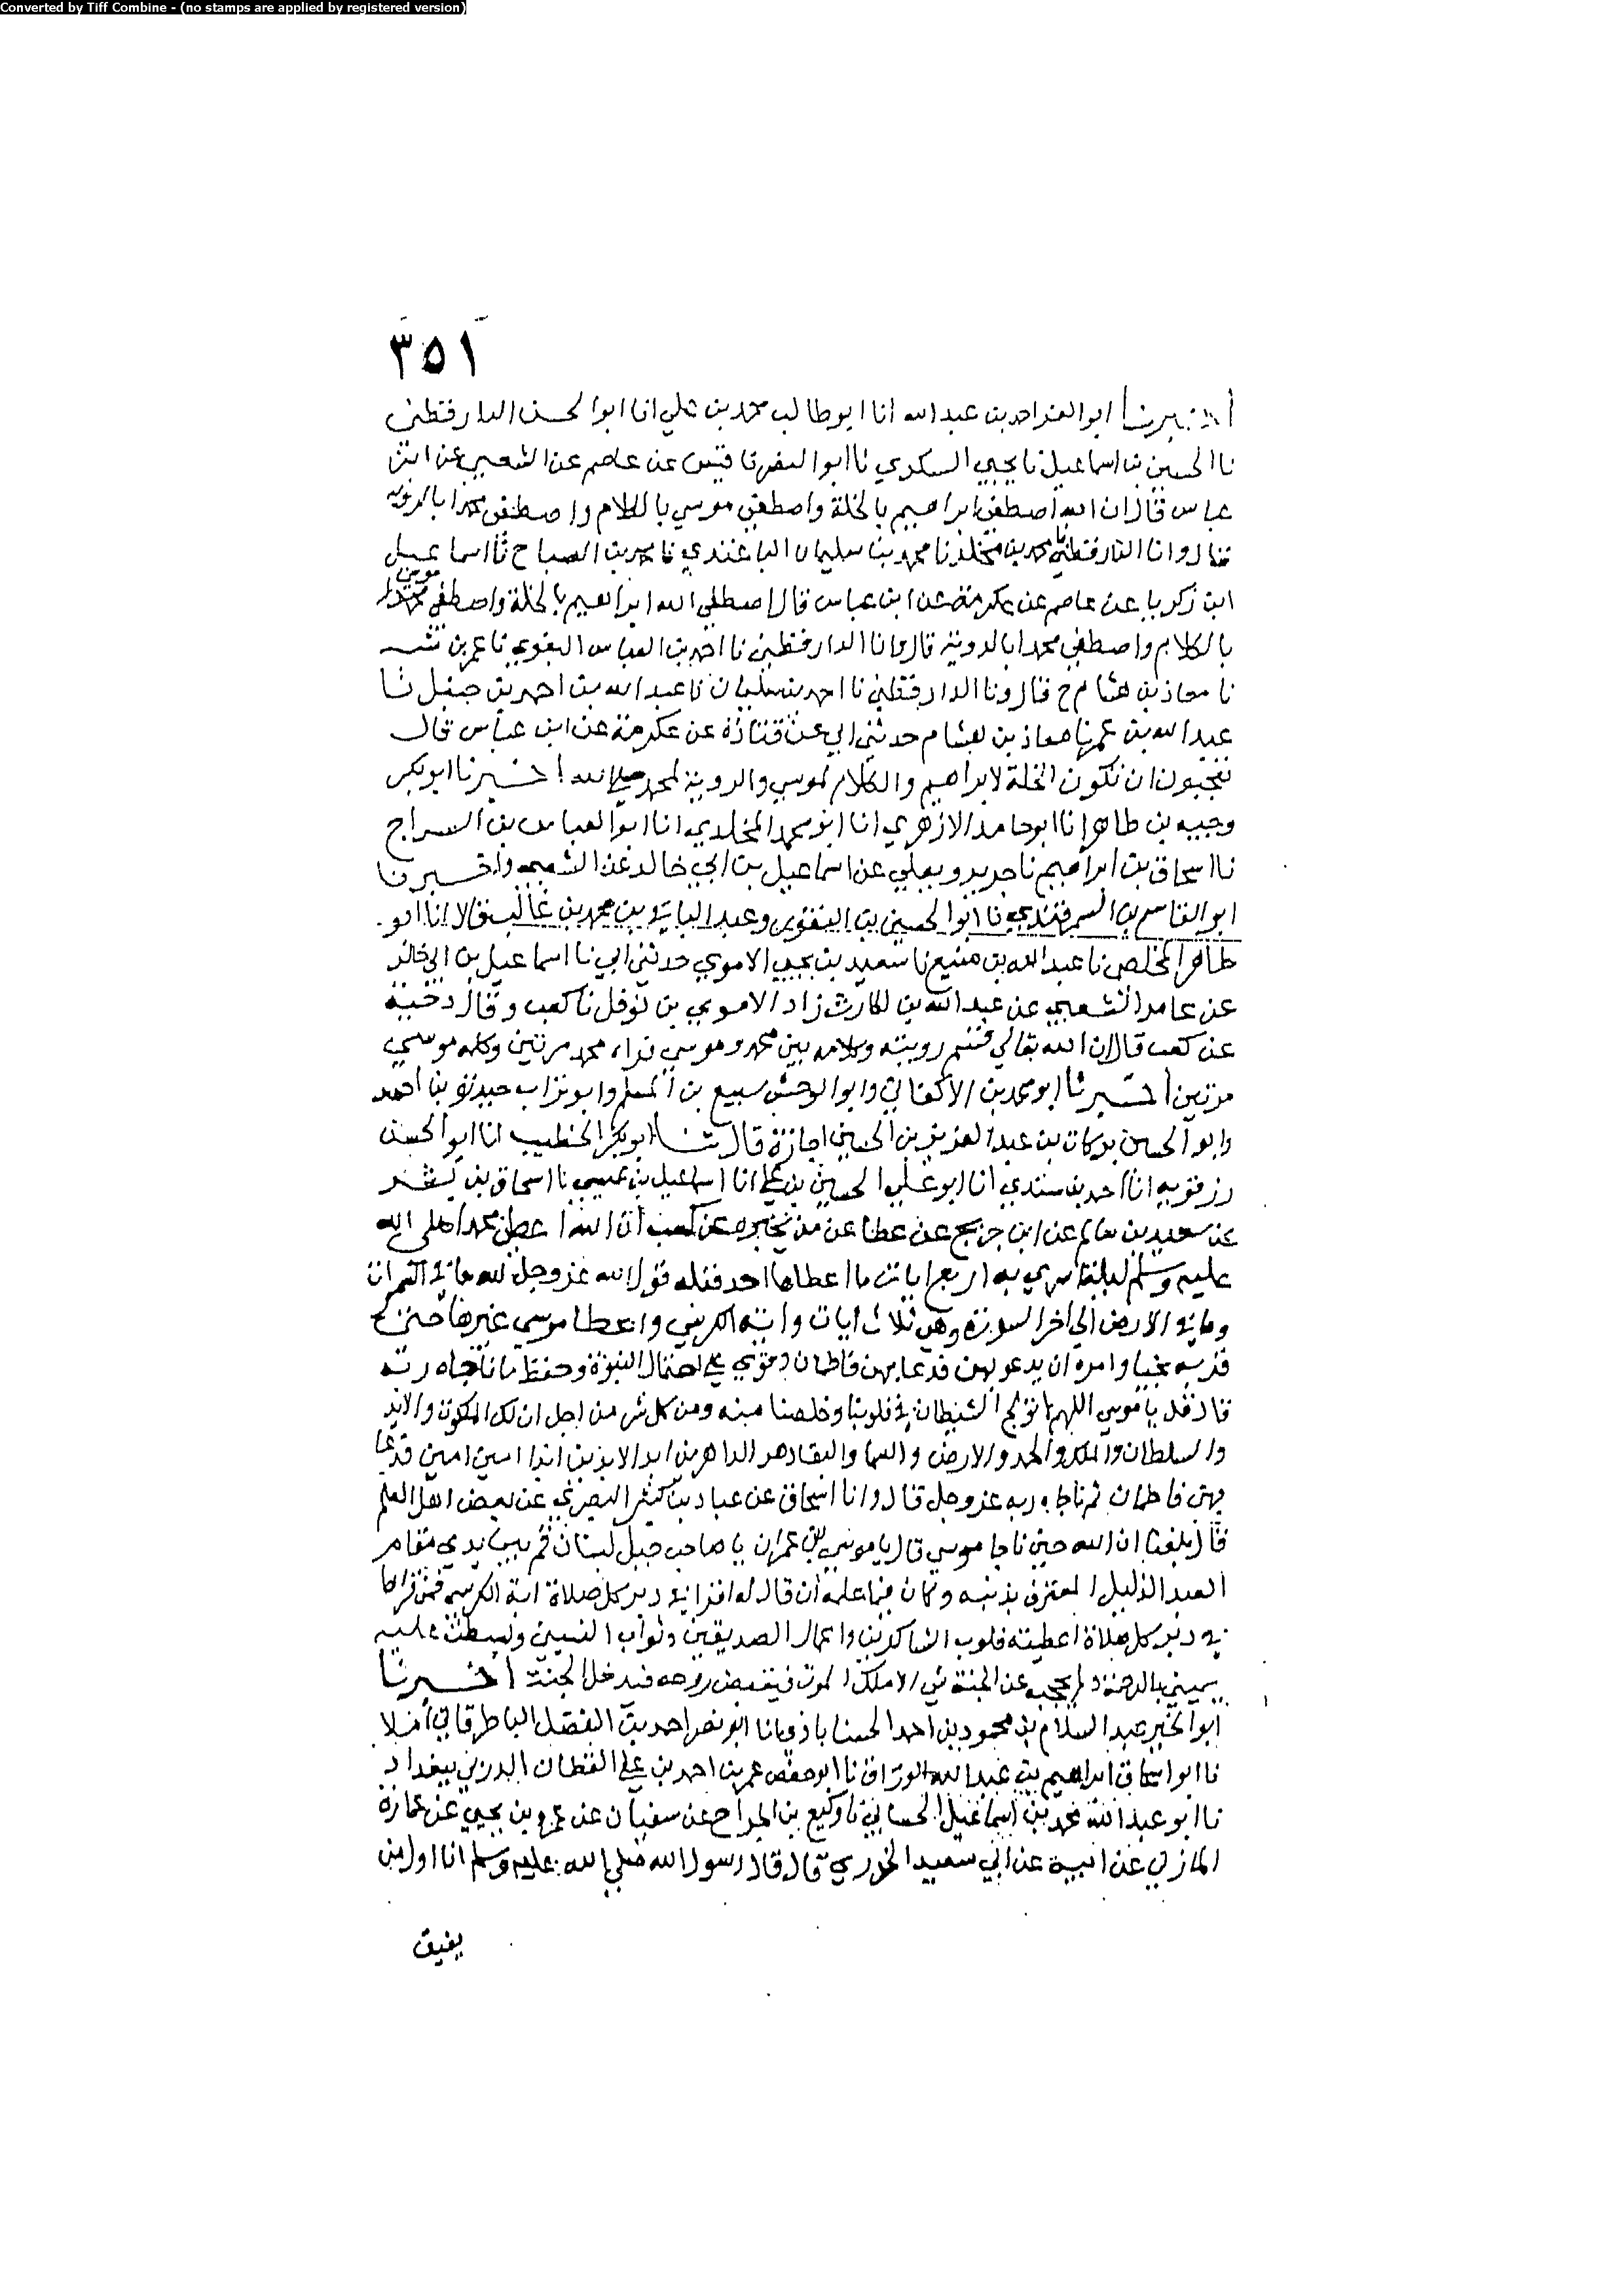 Converted by Tiff Combine - (no stamps are applied by registered version)
٣٥١
اخبرنا ابو العز احمد بن عبد الله انا ابو طالب محمد بن علي انا ابو الحسن الدارقطني
نا الحسين بن اسماعيل نا يحيى السكري نا ابو النضر نا قيس عن عاصم عن الشعبي عن ابن
عباس قال ان الله اصطفى ابراهيم بالخلة واصطفى موسي بالكلام واصطفى محمدا بالروية
قال وانا الدارقطني نا محمد بن مخلد نا محمد بن سليمان الباغندي نا محمد بن الصباح نا اسماعيل
ابن زكريا عن عاصم عن عكرمة عن ابن عباس قال اصطفي الله ابراهيم بالخلة واصطفي موسي
بالكلام واصطفي محمدا بالروية قال وانا الدارقطني نا احمد بن العباس البغوي نا عمر بن شبه
نا معاذ بن هشام ح قال ونا الدارقطني نا احمد بن سلمان نا عبد الله بن احمد بن حنبل نا
عبيد الله بن عمر نا معاذ بن هشام حدثني ابي عن قتادة عن عكرمة عن ابن عباس قال
تعجبون ان تكون الخلة لابراهيم والكلام لموسي والروية لمحمد صلى الله اخبرنا ابو بكر
وجيه بن طاهر انا ابو حامد الازهري انا ابو محمد المخلدي انا ابو العباس بن السراج
نا اسحاق بن ابراهيم نا جرير ويعلي عن اسماعيل بن ابي خالد عن الشعبي واخبرنا
ابو القاسم بن السمرقندي نا ابو الحسين بن النقور وعبد الباقي بن محمد بن غالب قالا انا ابو
طاهر المخلص نا عبد الله بن منيع نا سعيد بن يحيى الاموي حدثني ابي نا اسماعيل بن ابي خالد
عن عامر الشعبي عن عبد الله بن الحارث زاد الاموي بن نوفل نا كعب وقال وجيه
عن كعب قال ان الله تعالي قسم رويته وكلامه بين محمد وموسي فراه محمد مرتين وكلمه موسي
مرتين اخبرنا ابو محمد بن الاكفاني وابو الوحش سبيع بن المسلم وابو تراب حيدرة بن احمد
وابو الحسن بركات بن عبد العزيز بن الحسين اجازة قال نا ابو بكر الخطيب انا ابو الحسن
رزقويه انا احمد بن سندي انا ابو علي الحسين بن علي انا اسماعيل بن عيسى نا اسحاق بن بشر
عن سعيد بن سالم عن ابن جريج عن عطا عن من يخبره عن كعب ان الله اعطى محمدا صلى الله
عليه وسلم ليلة اسري به اربع ايات ما اعطاها احد قبله قول الله عز وجل لله ما في السموات
وما في الارض الي اخر السورة وهي ثلاث ايات واية الكرسي واعطا موسي غيرها حين
قربه نجيا وامره ان يدعو بهن فدعا بهن فاطمان وقوي علي احتمال النبوة وحفظ ما ناجاه ربه
قال قل يا موسي اللهم لا تولج الشيطان في قلوبنا وخلصنا منه ومن كل شر من اجل ان لك الملكوت والايد
والسلطان والملك والحمد والارض والسما والبقا دهر الداهرين ابد الابدين ابدا امين امين فدعا
بهن فاطمان ثم ناجاه ربه عز وجل قال وانا اسحاق عن عباد بن كثير البصري عن بعض اهل العلم
قال بلغنا ان الله حين ناجا موسي قال يا موسي بن عمران يا صاحب جبل لبنان قم بين يدي مقام
العبد الذليل المعترف بذنبه وكان فيما علمه ان قال له اقرا في دبر كل صلاة اية الكرسي فمن قراها
في دبر كل صلاة اعطيته قلوب الشاكرين واعمال الصديقين وثواب النبيين وبسطت عليه
يميني بالرحمة ولم يحجبه عن الجنة شي الا ملك الموت فيقبض روحه فيدخل الجنة اخبرنا
ابو الخير عبد السلام بن محمود بن احمد الحسناباذي انا ابو نصر احمد بن الفضل الباطرقاني املا
نا ابو اسحاق ابراهيم بن عبد الله الوراق نا ابو حفص عمر بن احمد بن علي القطان الدربي ببغداد
نا ابو عبد الله محمد بن اسماعيل الحساني نا وكيع بن الجراح عن سفيان عن عمرو بن يحيى عن عمارة
المازني عن ابيه عن ابي سعيد الخدري قال قال رسول الله صلى الله عليه وسلم انا اول من
يفيق